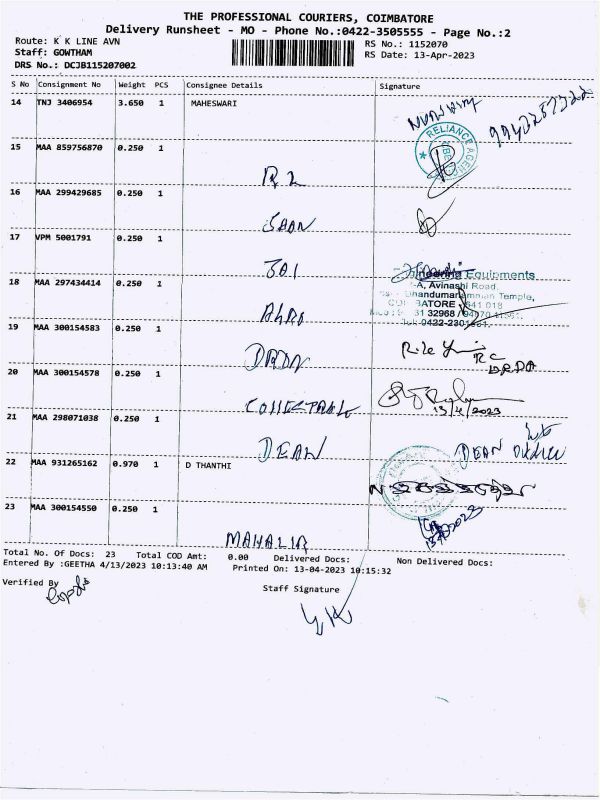 THE PROFESSIONAL COURIERS, COIMBATORE
Delivery Runsheet - MO - Phone No.:0422-3505555 - Page No.:2
Route: K K LINE AVN RS No.: 1152070
Staff: GOWTHAM RS Date: 13-Apr-2023
DRS No.: DCJB115207002
S No Consignment No Weight PCS Consignee Details Signature
14 TNJ 3406954 3.650 1 MAHESWARI
RELIANCE
15 MAA 859756870 0.250 1
16 MAA 299429685 0.250 1
SHAN
17 VPM 5001791 0.250 1
JAI
Equipments
Avinashi Road,
18 MAA 297434414 0.250 1
Temple,
19 MAA 300154583 0.250 1
DRDA
20 MAA 300154578 0.250 1
13/4/2023
21 MAA 298071038 0.250 1
DEAN DEAN
22 MAA 931265162 0.970 1 D THANTHI
23 MAA 300154550 0.250 1
MAHALIR
Total No. Of Docs: 23 Total COD Amt: 0.00 Delivered Docs: Non Delivered Docs:
Entered By :GEETHA 4/13/2023 10:13:40 AM Printed On: 13-04-2023 10:15:32
Verified By Staff Signature